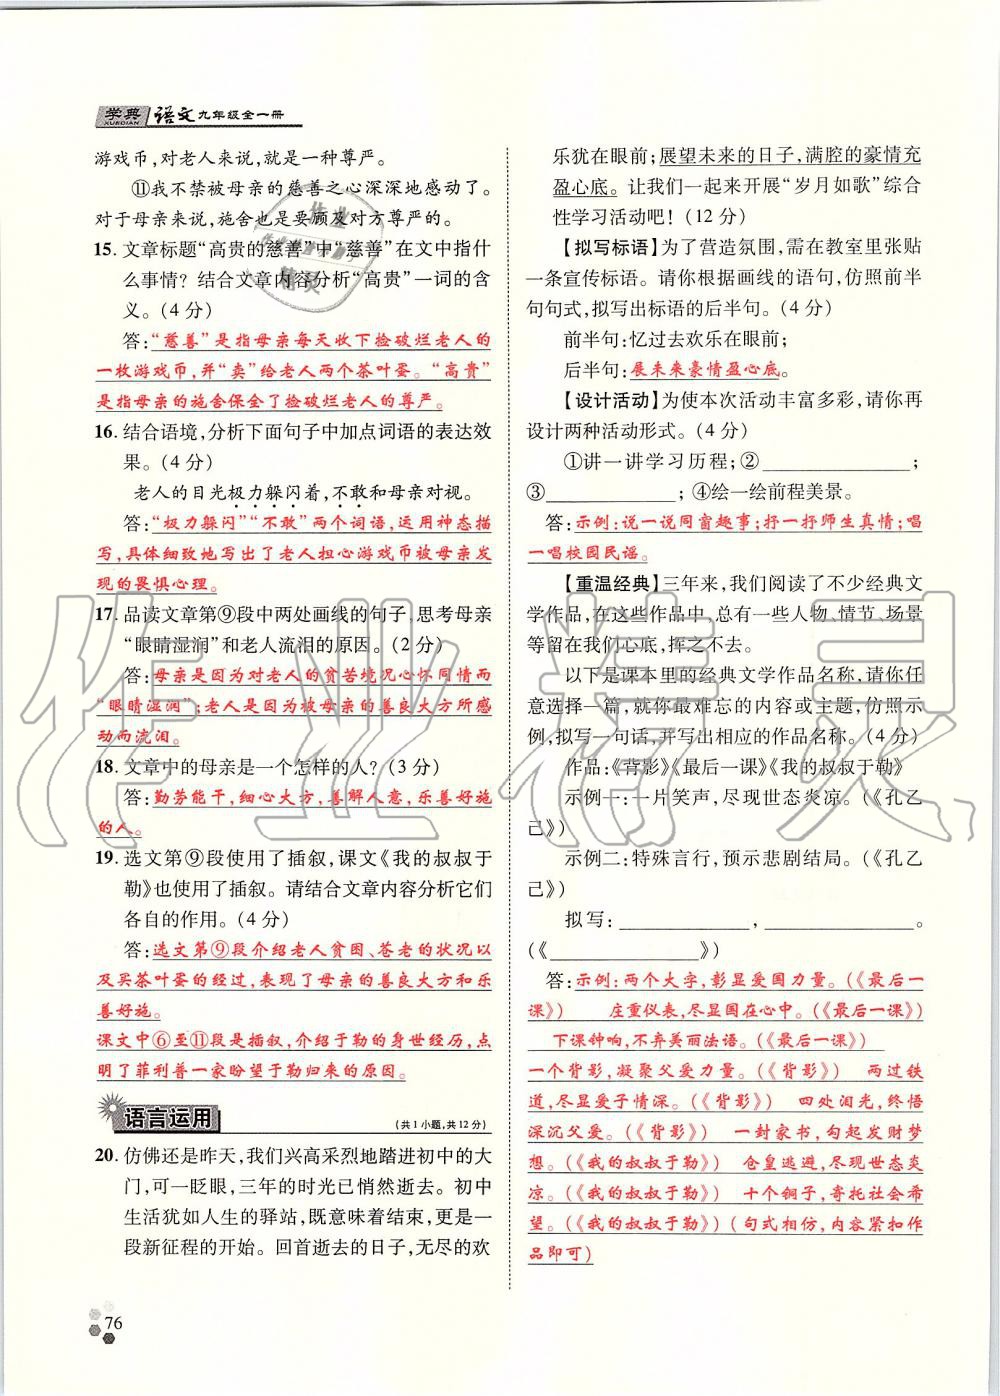 学典 XUEDIAN 语文九年级全一册
游戏币,对老人来说,就是一种尊严。
⑪我不禁被母亲的慈善之心深深地感动了。
对于母亲来说,施舍也是要顾及对方尊严的。
15. 文章标题“高贵的慈善”中“慈善”在文中指什
么事情?结合文章内容分析“高贵”一词的含
义。(4分)
答:“慈善”是指母亲每天收下捡破烂老人的
一枚游戏币,并“卖”给老人两个茶叶蛋。“高贵”
是指母亲的施舍保全了捡破烂老人的尊严。
16. 结合语境,分析下面句子中加点词语的表达效
果。(4分)
老人的目光极力躲闪着,不敢和母亲对视。
答:“极力躲闪”“不敢”两个词语,运用神态描
写,具体细致地写出了老人担心游戏币被母亲发
现的畏惧心理。
17. 品读文章第⑨段中两处画线的句子,思考母亲
“眼睛湿润”和老人流泪的原因。(2分)
答:母亲是因为对老人的贫苦境况心怀同情而
“眼睛湿润”;老人是因为被母亲的善良大方所感
动而流泪。
18. 文章中的母亲是一个怎样的人?(3分)
答:勤劳能干,细心大方,善解人意,乐善好施
的人。
19. 选文第⑨段使用了插叙,课文《我的叔叔于
勒》也使用了插叙。请结合文章内容分析它们
各自的作用。(4分)
答:选文第⑨段介绍老人贫困、苍老的状况以
及买茶叶蛋的经过,表现了母亲的善良大方和乐
善好施。
课文中⑥至⑪段是插叙,介绍于勒的身世经历,点
明了菲利普一家盼望于勒归来的原因。
语言运用 (共1小题,共12分)
20. 仿佛还是昨天,我们兴高采烈地踏进初中的大
门,可一眨眼,三年的时光已悄然逝去。初中
生活犹如人生的驿站,既意味着结束,更是一
段新征程的开始。回首逝去的日子,无尽的欢
乐犹在眼前;展望未来的日子,满腔的豪情充
盈心底。让我们一起来开展“岁月如歌”综合
性学习活动吧!(12分)
【拟写标语】为了营造氛围,需在教室里张贴
一条宣传标语。请你根据画线的语句,仿照前半
句句式,拟写出标语的后半句。(4分)
前半句:忆过去欢乐在眼前;
后半句:展未来豪情盈心底。
【设计活动】为使本次活动丰富多彩,请你再
设计两种活动形式。(4分)
①讲一讲学习历程;②____________;
③____________;④绘一绘前程美景。
答:示例:说一说同窗趣事;抒一抒师生真情;唱
一唱校园民谣。
【重温经典】三年来,我们阅读了不少经典文
学作品,在这些作品中,总有一些人物、情节、场景
等留在我们心底,挥之不去。
以下是课本里的经典文学作品名称,请你任
意选择一篇,就你最难忘的内容或主题,仿照示
例,拟写一句话,并写出相应的作品名称。(4分)
作品:《背影》《最后一课》《我的叔叔于勒》
示例一:一片笑声,尽现世态炎凉。(《孔乙
己》)
示例二:特殊言行,预示悲剧结局。(《孔乙
己》)
拟写:____________,____________。
(《____________》)
答:示例:两个大字,彰显爱国力量。(《最后一
课》) 庄重仪表,尽显国在心中。(《最后一课》)
下课钟响,不弃美丽法语。(《最后一课》)
一个背影,凝聚父爱力量。(《背影》) 两过铁
道,尽显爱子情深。(《背影》) 四处泪光,终悟
深沉父爱。(《背影》) 一封家书,勾起发财梦
想。(《我的叔叔于勒》) 仓皇逃避,尽现世态炎
凉。(《我的叔叔于勒》) 十个铜子,寄托社会希
望。(《我的叔叔于勒》)(句式相仿,内容紧扣作
品即可)
76
作业精灵